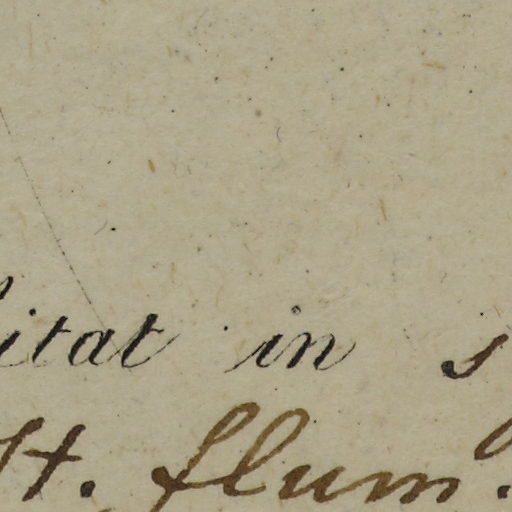 itat in s
st. flum.